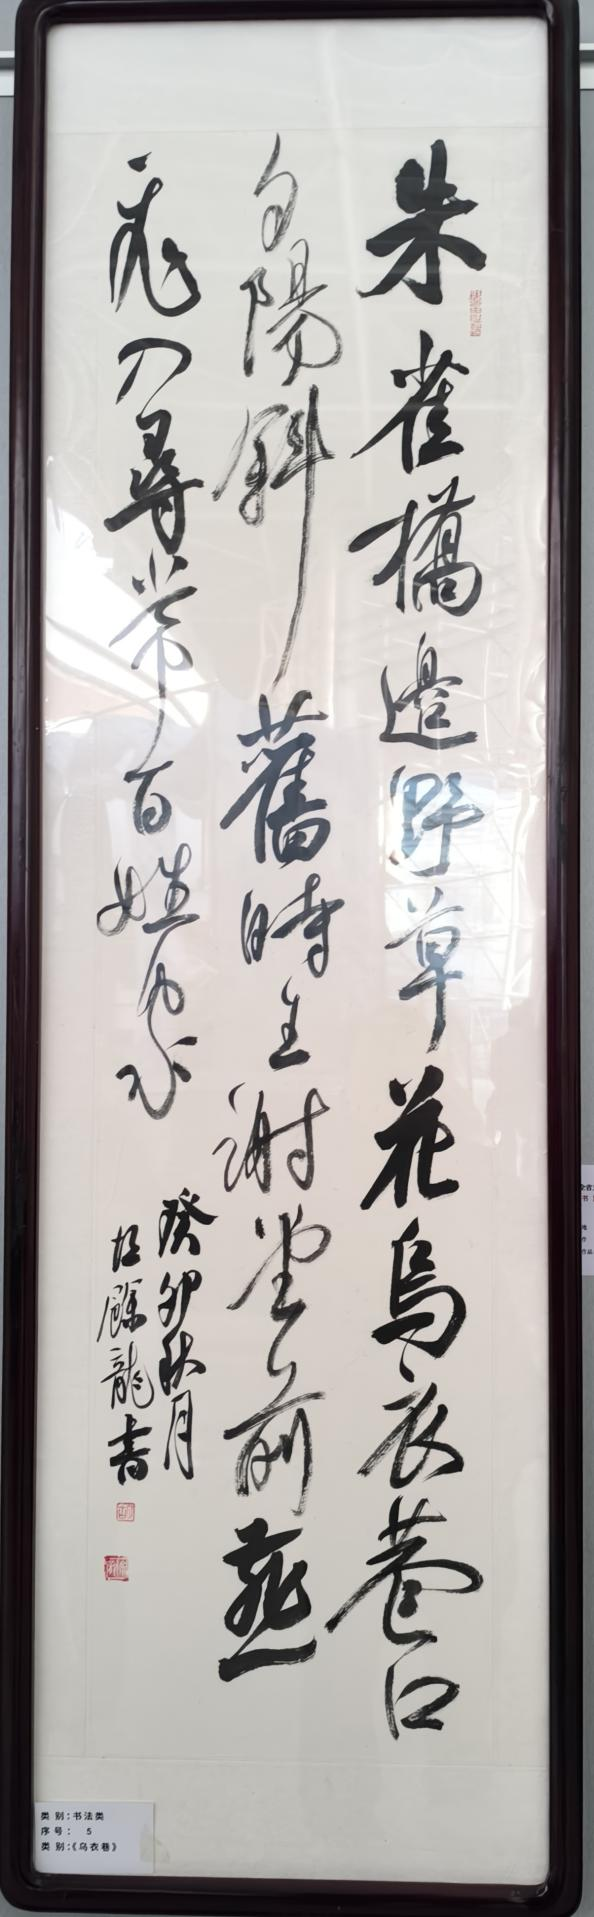 朱雀橋邊野草花烏衣巷口
夕陽斜舊時王謝堂前燕
飛入尋常百姓家
癸卯秋月
餘龍書
类别:书法类
序号: 5
类别:《乌衣巷》